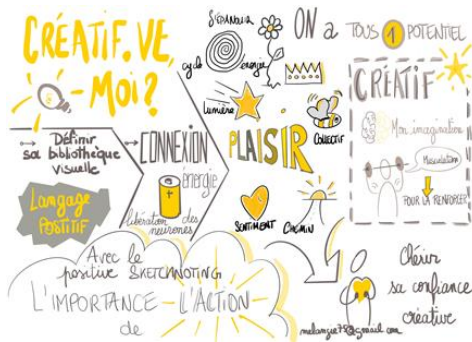 CRÉATIF.VE,
MOI?
Définir
sa bibliothèque
visuelle
Langage
POSITIF
CONNEXION
énergie
+
libération des
neurones
S'ÉPANOUIR
cycle
énergie
Lumière
COLLECTIF
PLAISIR
SENTIMENT
CHEMIN
ON a TOUS 1 POTENTIEL
CRÉATIF
Mon imagination
Musculation
POUR LA RENFORCER
Avec le
positive SKETCHNOTING
L'IMPORTANCE
de
L'ACTION
Chérir
sa confiance
créative